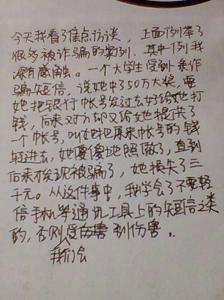 今天我看了焦点访谈，上面列举了
很多被诈骗的案例。其中一例我
深有感触。一个大学生受到一条诈
骗短信，说她中了50万大奖，需
她把银行帐号发过去好给她打
钱，后来对方却又给她提供了
一个帐号，叫她把原来帐号的钱
转进去，她傻傻地照做了，直到
后来才发现被骗了，她损失了三
千元。从这件事中，我学会了不要轻
信手机等通讯工具上的短信之类
的，否则会伤害 受到伤害。
我们会